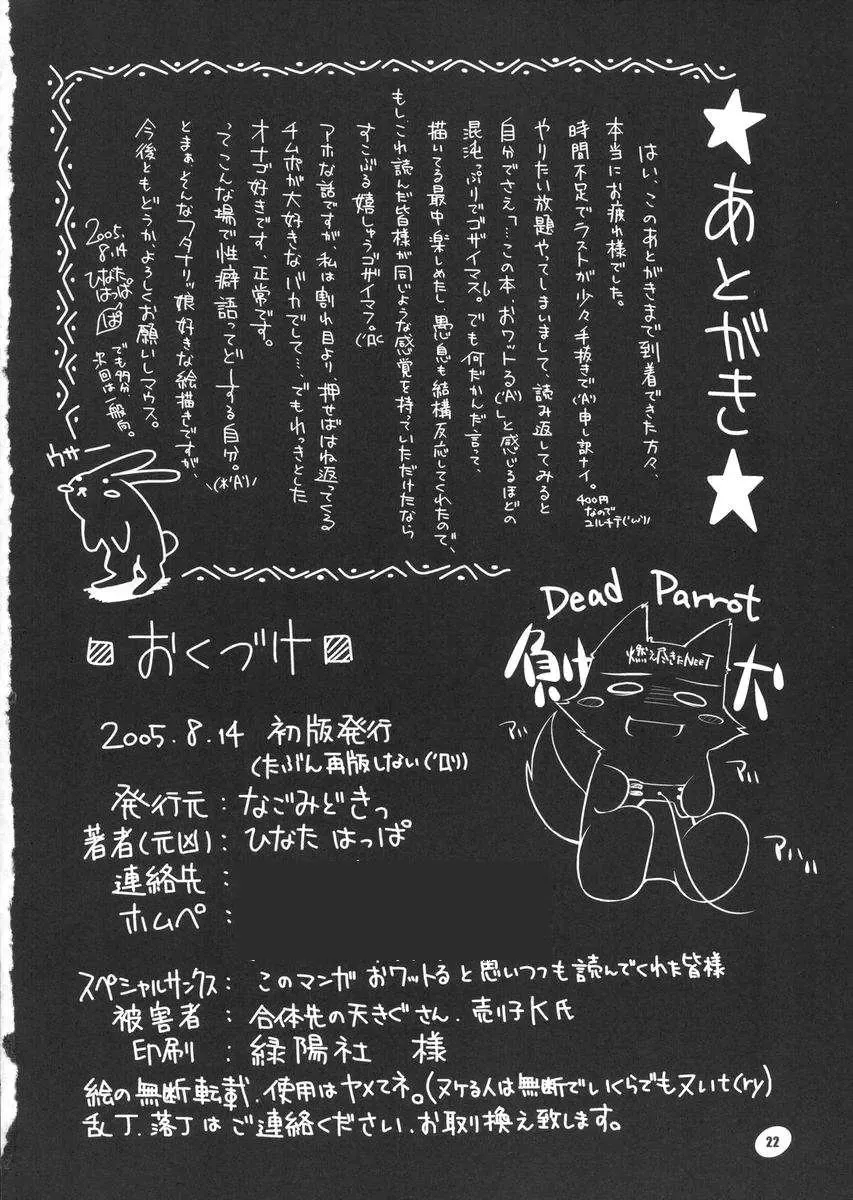 ★あとがき★
はい、このあとがきまで到着できた方々、
本当にお疲れ様でした。
時間不足でラストが少々手抜きで('A`)申し訳ナイ。
400円
なので
ユルチテ('ω`)ノ
やりたい放題やってしまいまして、読み返してみると
自分でさえ「…この本、おワットる('A`)」と感じるほどの
混沌っぷりでゴザイマス。でも何だかんだ言って、
描いてる最中楽しめたし愚息も結構反応してくれたので、
もしこれ読んだ皆様が同じような感覚を持っていただけたなら
すこぶる嬉しゅうゴザイマス。
アホな話ですが、私は割れ目より押せばはね返ってくる
チムポが大好きなバカでして…、でもれっきとした
オナゴ好きです、正常です。
ってこんな場で性癖語ってどーする自分。
とまぁそんなフタナリッ娘好きな絵描きですが、
今後ともどうか、よろしくお願いしマウス。
でも多分
次回は一般向。
2005.
8.14
ひなた
はっぱ
ぱ
ウサー
Dead Parrot
負け犬
燃え尽きたNEET
アハ
アハ
アハハ
おくづけ
2005.8.14 初版発行
(たぶん再版しない('ロ`))
発行元：なごみどきっ
著者(元凶)：ひなた はっぱ
連絡先：
ホムペ：
スペシャルサンクス：このマンガおワットると思いつつも読んでくれた皆様
被害者：合体先の天きぐさん、売り子K氏
印刷：緑陽社 様
絵の無断転載、使用はヤメてネ。(ヌケる人は無断でいくらでも又いt(ry)
乱丁、落丁はご連絡ください、お取り換え致します。
22